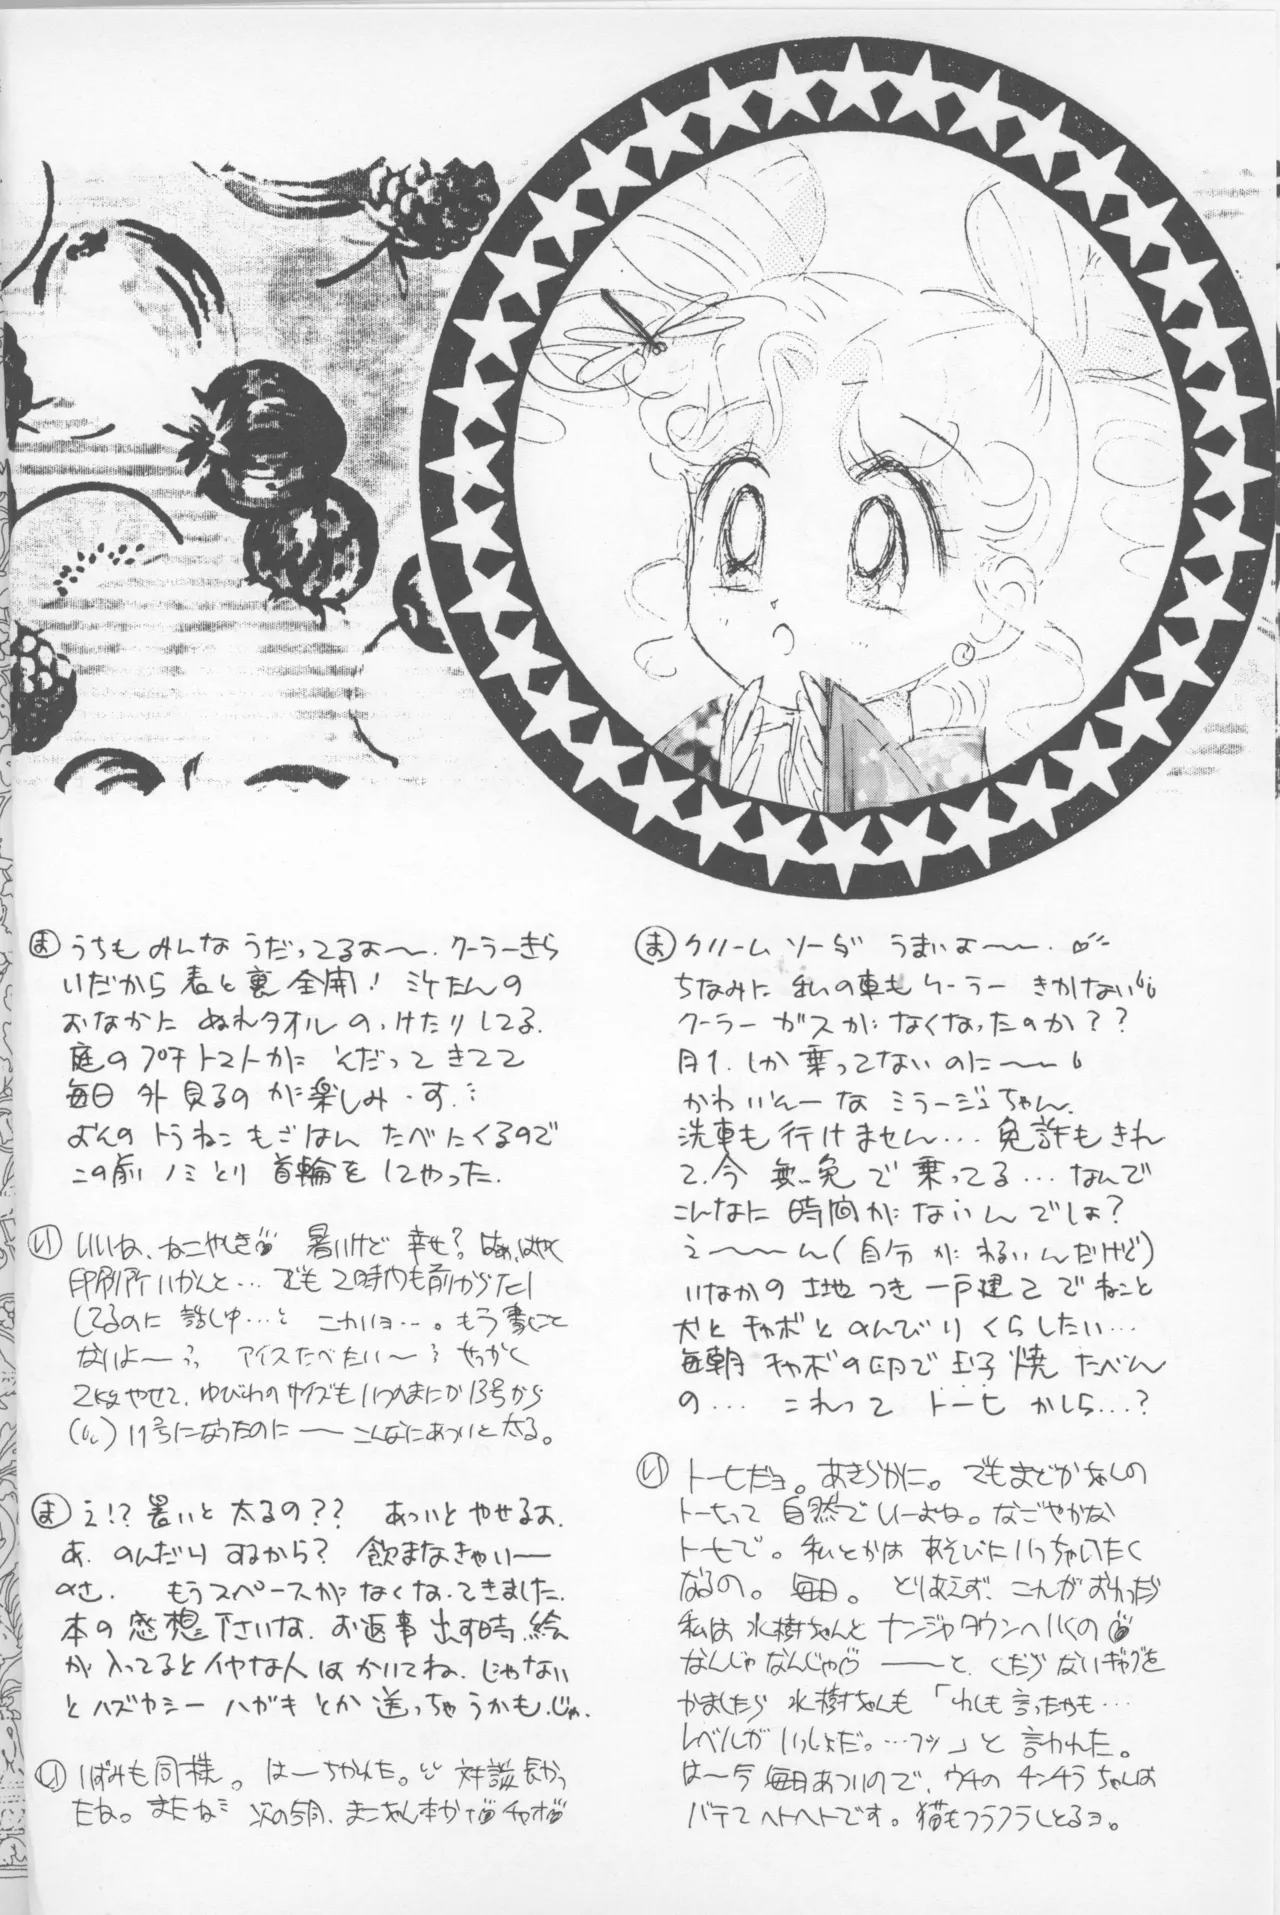 ま クリームソーダ うまいよ〜〜.
ちなみに 私の車も クーラー きかない
クーラー ガスがなくなったのか??
月1.しか乗ってないのに〜〜
かわいんーな ミラージュちゃん.
洗車も行けません… 免許もきれ
て.今 無免で乗ってる…なんで
こんなに 時間がないんでしょ?
え〜〜〜ん(自分がわるいんだけど)
いなかの土地つき一戸建てでねこと
犬と チャボと のんびり くらしたい…
毎朝 チャボの卵で玉子焼 たべん
の… これって トーヒ かしら…?
り トーヒだョ。あきらかに。でもまどかちゃんの
トーヒって 自然でいーよね。なごやかな
トーヒで。私とかは あそびにいっちゃいたく
なるの。毎日。とりあえず、これがおわったら
私は 水樹ちゃんと ナンジャタウンへいくの
なんじゃなんじゃ ーーと、くだらないギャグを
かましたら 水樹ちゃんも「わしも言ったやも…
レベルがいっしょだ。…フッ」と 言われた。
はー今 毎日あついので、ウチの チンチラちゃんは
バテてヘトヘトです。猫もフラフラしとるョ。
ま うちも みんな うだってるよ〜〜. クーラーきら
いだから 表と裏 全開! ミケたんの
おなかに ぬれタオル のっけたりしてる.
庭の プチトマトが そだってきてて
毎日 外見るのが楽しみ・す.
よんの トラねこも ごはん たべにくるので
この前 ノミとり 首輪を してやった.
り いいね、ねこやしき 暑いけど 幸せ? はぁ、はやく
印刷所いかんと… でも 2時間も前からたし
してるのに 話し中…と こわいョ…。もう書くこと
ないよ〜 アイスたべたい〜 せっかく
2kgやせて、ゆびわのサイズも いつのまにか 13号から
11号になったのに ーー こんなにあついと太る。
ま え!? 暑いと 太るの?? あついと やせるよ.
あ. のんだり するから? 飲まなきゃいー
のさ. もうスペースが なくなってきました.
本の感想 下さいな. お返事 出す時、絵
が 入ってると イヤな人は かいてね. じゃない
と ハズカシー ハガキ とか 送っちゃうかも.じゃ.
り いぱみも同様。 はーちかれた。 対談 長かっ
たね。またね 次の 、まこちゃん本か チャオ